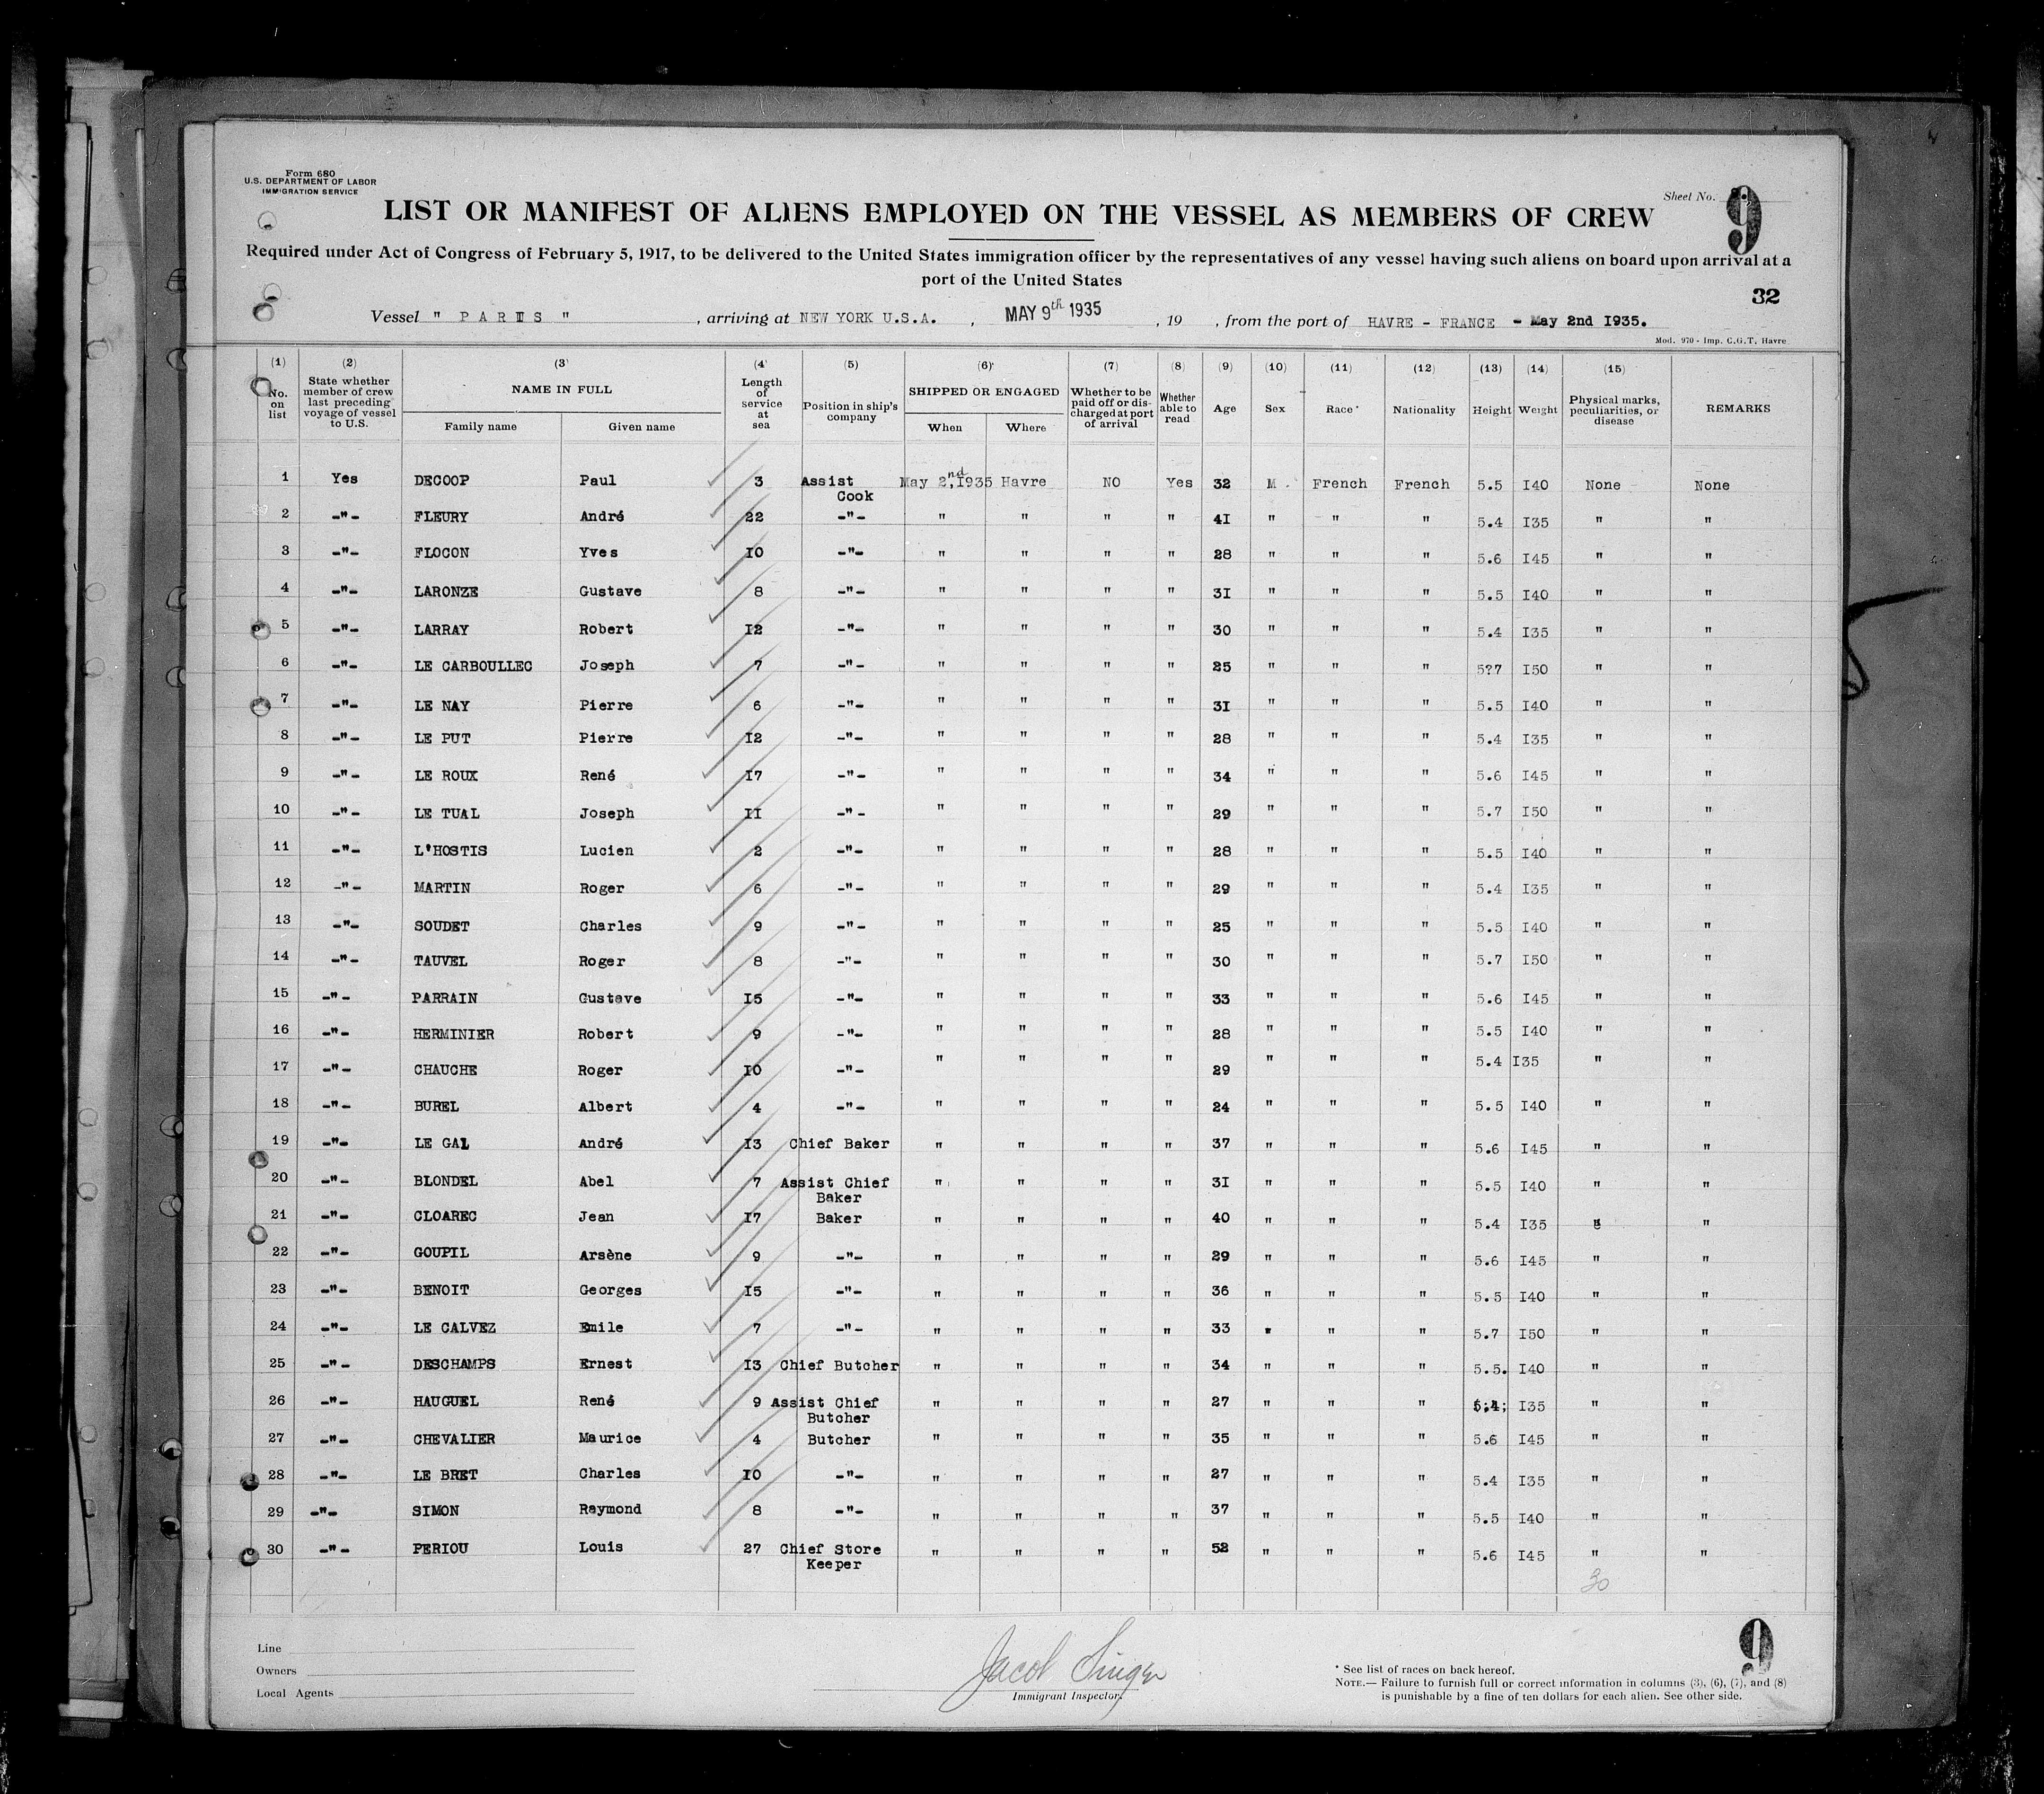 Form 680
U.S. DEPARTMENT OF LABOR
IMMIGRATION SERVICE
Sheet No. 9
LIST OR MANIFEST OF ALIENS EMPLOYED ON THE VESSEL AS MEMBERS OF CREW
Required under Act of Congress of February 5, 1917, to be delivered to the United States immigration officer by the representatives of any vessel having such aliens on board upon arrival at a
port of the United States
32
Vessel " PARIS " , arriving at NEW YORK U.S.A. , MAY 9th 1935 , 19 , from the port of HAVRE - FRANCE - May 2nd 1935.
Mod. 970 - Imp. C.G.T. Havre
(1) (2) (3) (4) (5) (6) (7) (8) (9) (10) (11) (12) (13) (14) (15)
No. on list State whether member of crew last preceding voyage of vessel to U.S. NAME IN FULL Family name Given name Length of service at sea Position in ship's company SHIPPED OR ENGAGED When Where Whether to be paid off or discharged at port of arrival Whether able to read Age Sex Race* Nationality Height Weight Physical marks, peculiarities, or disease REMARKS
1 Yes DECOOP Paul 3 Assist Cook May 2nd,1935 Havre NO Yes 32 M. French French 5.5 I40 None None
2 -"- FLEURY André 22 -"- " " " " 4I " " " 5.4 I35 " "
3 -"- FLOCON Yves I0 -"- " " " " 28 " " " 5.6 I45 " "
4 -"- LARONZE Gustave 8 -"- " " " " 3I " " " 5.5 I40 " "
5 -"- LARRAY Robert I2 -"- " " " " 30 " " " 5.4 I35 " "
6 -"- LE CARBOULLEC Joseph 7 -"- " " " " 25 " " " 5?7 I50 " "
7 -"- LE NAY Pierre 6 -"- " " " " 3I " " " 5.5 I40 " "
8 -"- LE PUT Pierre I2 -"- " " " " 28 " " " 5.4 I35 " "
9 -"- LE ROUX René I7 -"- " " " " 34 " " " 5.6 I45 " "
10 -"- LE TUAL Joseph II -"- " " " " 29 " " " 5.7 I50 " "
11 -"- L'HOSTIS Lucien 2 -"- " " " " 28 " " " 5.5 I40 " "
12 -"- MARTIN Roger 6 -"- " " " " 29 " " " 5.4 I35 " "
13 -"- SOUDET Charles 9 -"- " " " " 25 " " " 5.5 I40 " "
14 -"- TAUVEL Roger 8 -"- " " " " 30 " " " 5.7 I50 " "
15 -"- PARRAIN Gustave I5 -"- " " " " 33 " " " 5.6 I45 " "
16 -"- HERMINIER Robert 9 -"- " " " " 28 " " " 5.5 I40 " "
17 -"- CHAUCHE Roger I0 -"- " " " " 29 " " " 5.4 I35 " "
18 -"- BUREL Albert 4 -"- " " " " 24 " " " 5.5 I40 " "
19 -"- LE GAL André I3 Chief Baker " " " " 37 " " " 5.6 I45 " "
20 -"- BLONDEL Abel 7 Assist Chief Baker " " " " 3I " " " 5.5 I40 " "
21 -"- CLOAREC Jean I7 Baker " " " " 40 " " " 5.4 I35 " "
22 -"- GOUPIL Arsène 9 -"- " " " " 29 " " " 5.6 I45 " "
23 -"- BENOIT Georges I5 -"- " " " " 36 " " " 5.5 I40 " "
24 -"- LE CALVEZ Emile 7 -"- " " " " 33 " " " 5.7 I50 " "
25 -"- DESCHAMPS Ernest I3 Chief Butcher " " " " 34 " " " 5.5. I40 " "
26 -"- HAUGUEL René 9 Assist Chief Butcher " " " " 27 " " " 5;4; I35 " "
27 -"- CHEVALIER Maurice 4 Butcher " " " " 35 " " " 5.6 I45 " "
28 -"- LE BRET Charles I0 -"- " " " " 27 " " " 5.4 I35 " "
29 -"- SIMON Raymond 8 -"- " " " " 37 " " " 5.5 I40 " "
30 -"- PERIOU Louis 27 Chief Store Keeper " " " " 52 " " " 5.6 I45 " "
30
Line
Owners
Local Agents
Jacob Singer
Immigrant Inspector.
9
* See list of races on back hereof.
NOTE.— Failure to furnish full or correct information in columns (3), (6), (7), and (8)
is punishable by a fine of ten dollars for each alien. See other side.